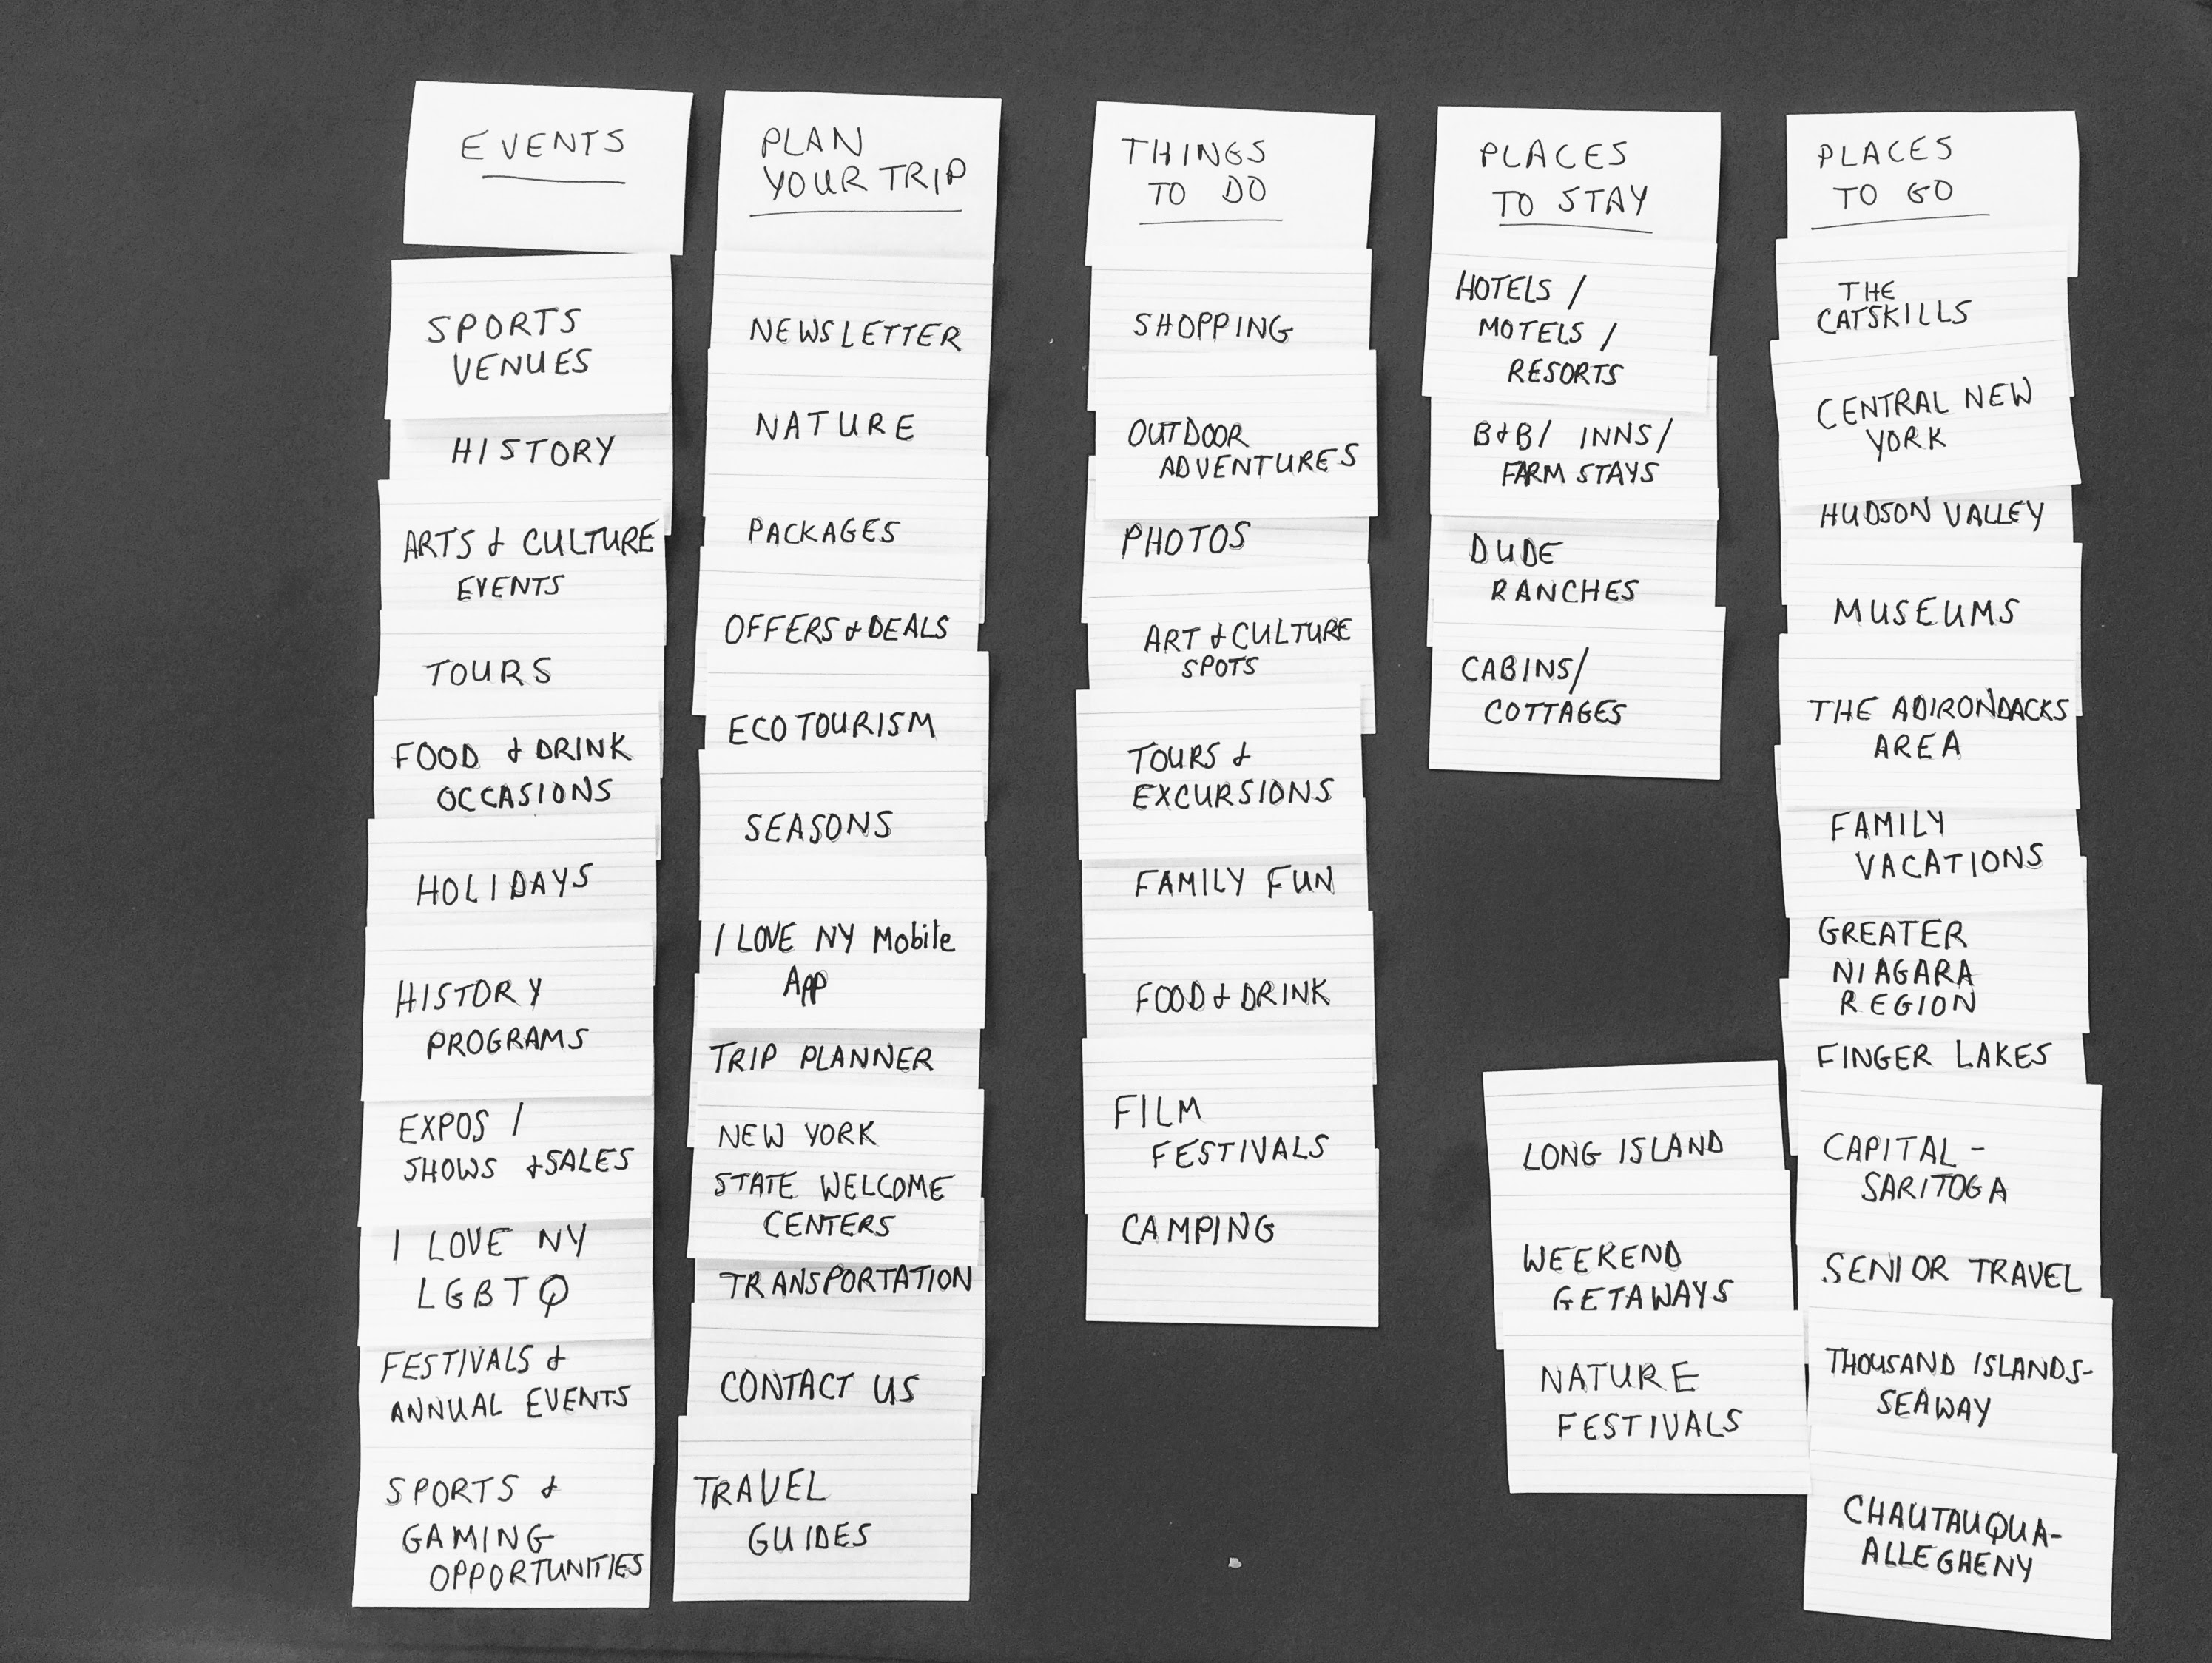 EVENTS
SPORTS
VENUES
HISTORY
ARTS & CULTURE
EVENTS
TOURS
FOOD & DRINK
OCCASIONS
HOLIDAYS
HISTORY
PROGRAMS
EXPOS /
SHOWS & SALES
I LOVE NY
LGBTQ
FESTIVALS &
ANNUAL EVENTS
SPORTS &
GAMING
OPPORTUNITIES
PLAN
YOUR TRIP
NEWSLETTER
NATURE
PACKAGES
OFFERS & DEALS
ECOTOURISM
SEASONS
I LOVE NY Mobile
App
TRIP PLANNER
NEW YORK
STATE WELCOME
CENTERS
TRANSPORTATION
CONTACT US
TRAVEL
GUIDES
THINGS
TO DO
SHOPPING
OUTDOOR
ADVENTURES
PHOTOS
ART & CULTURE
SPOTS
TOURS &
EXCURSIONS
FAMILY FUN
FOOD & DRINK
FILM
FESTIVALS
CAMPING
PLACES
TO STAY
HOTELS /
MOTELS /
RESORTS
B&B/ INNS/
FARM STAYS
DUDE
RANCHES
CABINS/
COTTAGES
LONG ISLAND
WEEKEND
GETAWAYS
NATURE
FESTIVALS
PLACES
TO GO
THE
CATSKILLS
CENTRAL NEW
YORK
HUDSON VALLEY
MUSEUMS
THE ADIRONDACKS
AREA
FAMILY
VACATIONS
GREATER
NIAGARA
REGION
FINGER LAKES
CAPITAL -
SARITOGA
SENIOR TRAVEL
THOUSAND ISLANDS-
SEAWAY
CHAUTAUQUA-
ALLEGHENY